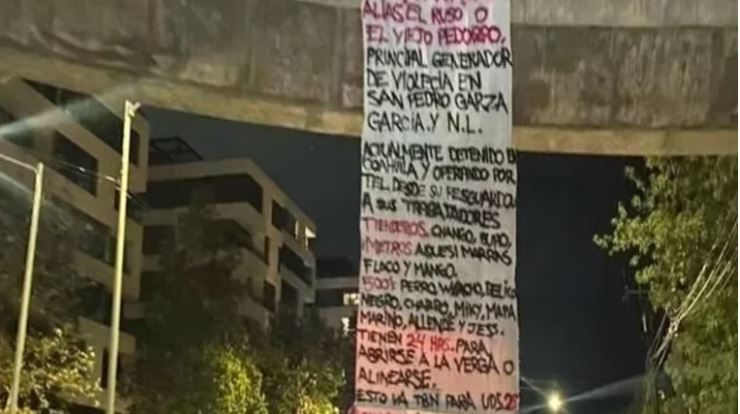 ALIAS EL RUSO O
EL VIEJO PEDORRO,
PRINCIPAL GENERADOR
DE VIOLECIA EN
SAN PEDRO GARZA
GARCIA. Y N.L.
ACTUALMENTE DETENIDO EN
COAHUILA Y OPERANDO POR
TEL DESDE SU RESGUARDO
A SUS TRABAJADORES
TIENDEROS. CHANGO, BUFO,
METROS. AQUI SI MARRAS
FLACO Y MANGO.
PERRO, DELICO
NEGRO, CHARRO, MIKY, MAPA
MARINO, ALLENDE Y JESS.
TIENEN 24 HRS. PARA
ABRIRSE A LA VERGA O
ALINEARSE.
ESTO VA TBN PARA UDS.